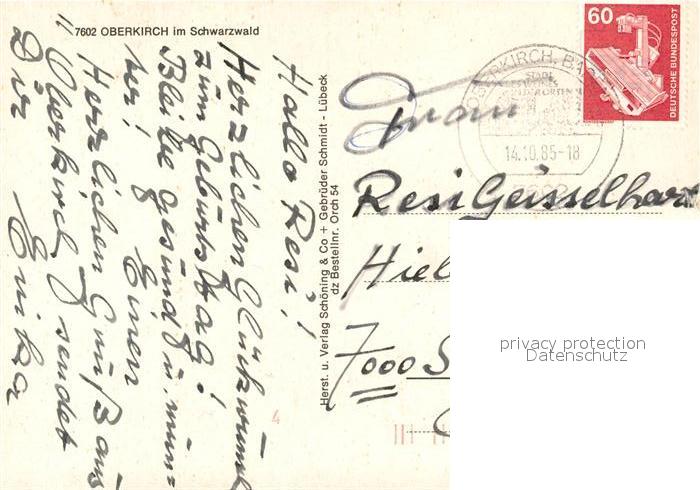 7602 OBERKIRCH im Schwarzwald
Hallo Resi!
Herzlichen Glückwunsch
zum Geburtstag!
Bleibe gesund u. mun=
ter! Einen
Herzlichen Gruß aus
Oberkirch sendet
Dir Erika
Herst. u. Verlag Schöning & Co + Gebrüder Schmidt - Lübeck
dz Bestellnr. Orch 54
60
DEUTSCHE BUNDESPOST
OBERKIRCH, BADEN
14.10.85-18
Frau
Resi Geisselhar
Hiel
7000 S
4
privacy protection
Datenschutz